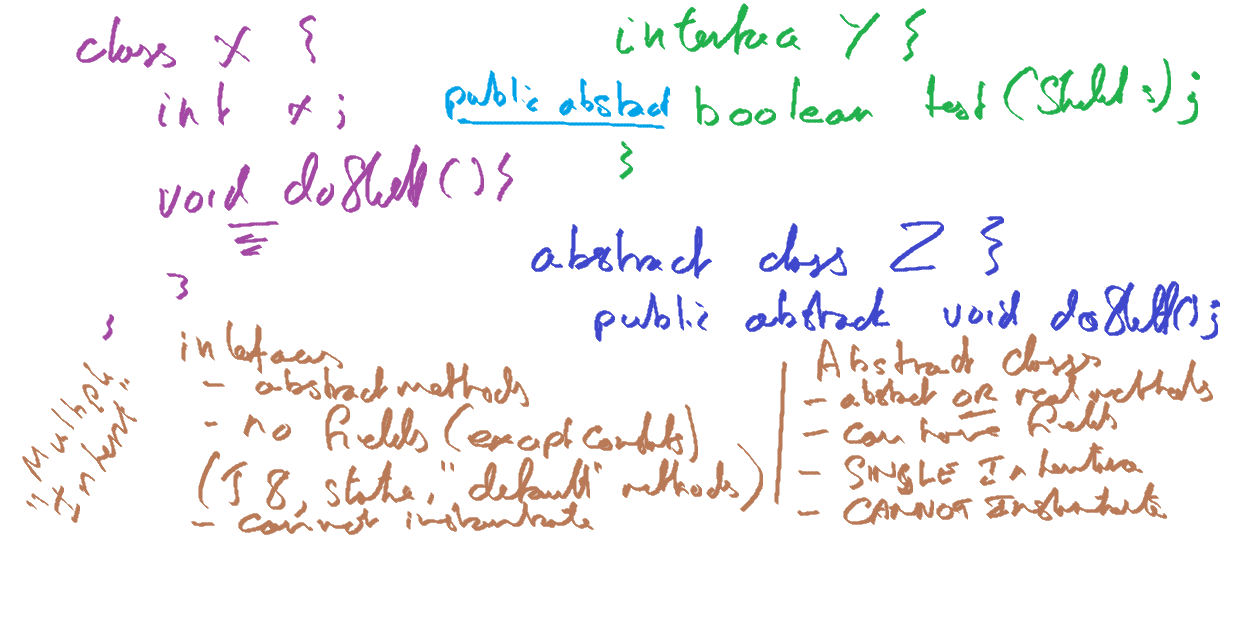 class X {
int x;
void doStuff() {
}
}
interface Y {
public abstract boolean test(Student s);
}
abstract class Z {
public abstract void doStuff();
interfaces
- abstract methods
- no fields (except constants)
(J 8, static, "default" methods)
- cannot instantiate
"Multiple
Inherit"
Abstract classes
- abstract OR real methods
- can have fields
- SINGLE Inheritance
- CANNOT Instantiate